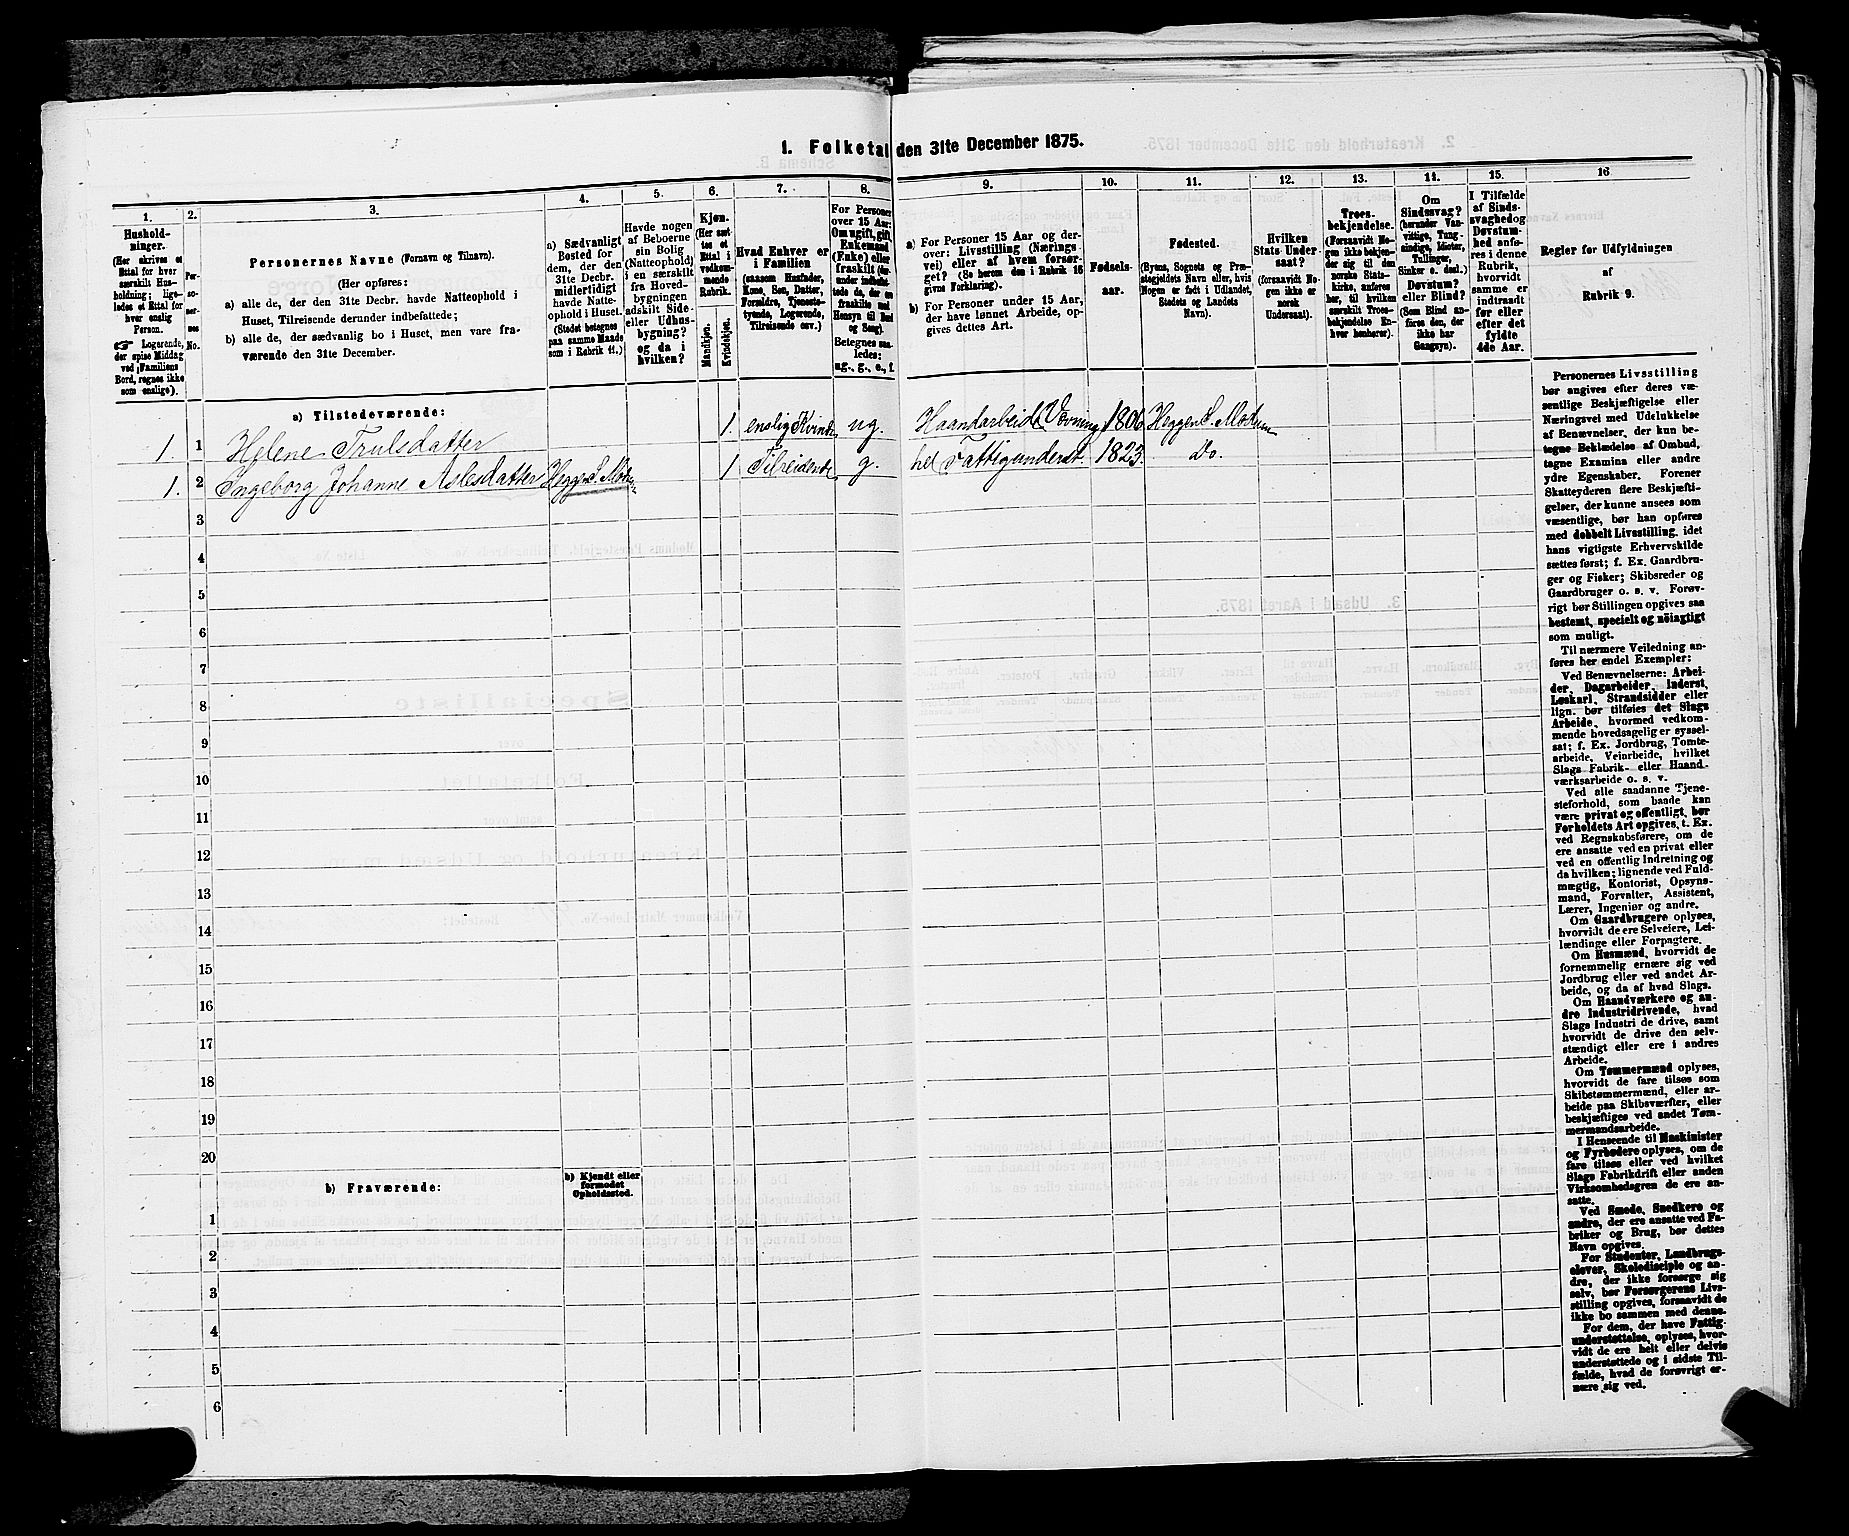 1. Folketal den 31te December 1875.
1.
2.
3.
4.
5.
6.
7.
8.
9.
10.
11.
12.
13.
14.
15.
16
Hushold-
ninger.
(Her skrives et
Ettal for hver
særskilt Hus-
holdning; lige-
ledes et Ettal for
hver enslig
Person.
☞ Logerende,
der spise Middag
ved Familiens
Bord, regnes ikke
som enslige).
Per-
so-
ner-
nes
No.
Personernes Navne (Fornavn og Tilnavn).
(Her opføres:
a) alle de, der den 31te Decbr. havde Natteophold i
Huset, Tilreisende derunder indbefattede;
b) alle de, der sædvanlig bo i Huset, men vare fra-
værende den 31te December.
a) Sædvanligt
Bosted for
dem, der den
31te Decbr.
midlertidigt
havde Natte-
ophold i Huset.
(Stedet betegnes
paa samme Maade
som i Rubrik 11.)
Havde nogen
af Beboerne
sin Bolig
(Natteophold)
i en særskilt
fra Hoved-
bygningen
adskilt Side-
eller Udhus-
bygning?
og da i
hvilken?
Kjøn.
(Her sæt-
tes et
Ettal i
vedkom-
mende
Rubrik.
Mandkjøn.
Kvindekjøn.
Hvad Enhver er
i Familien
(saasom Husfader,
Kone, Søn, Datter,
Forældre, Tjeneste-
tyende, Logerende,
Tilreisende osv.)
For Personer
over 15 Aar:
Om ugift, gift,
Enkemand
(Enke) eller
fraskilt (der-
under indbefat-
tede de, der ere
fraskilte med
Hensyn til Bord
og Seng).
Betegnes saa-
ledes:
ug., g., e., f.
a) For Personer 15 Aar og der-
over: Livsstilling (Nærings-
vei) eller af hvem forsør-
get? (Se herom den i Rubrik 16
givne Forklaring).
b) For Personer under 15 Aar,
der have lønnet Arbeide, op-
gives dettes Art.
Fødsels-
aar.
Fødested.
(Byens, Sognets og Præ-
stegjeldets Navn eller, hvis
Nogen er født i Udlandet,
Stedets og Landets
Navn).
Hvilken
Stats Under-
saat?
(forsaavidt No-
gen ikke er
norsk
Undersaat).
Troes-
bekjendelse.
(Forsaavidt No-
gen ikke bekjen-
der sig til den
norske Stats-
kirke, anføres
her, til hvilken
særskilt Troes-
bekjendelse En-
hver henhører).
Om
Sindssvag?
(herunder Van-
vittige, Tung-
sindige, Idioter,
Tullinger,
Sinker o. desl.)
Døvstum?
eller Blind?
(Som Blind an-
føres den, der
ikke har
Gangsyn).
I Tilfælde
af Sinds-
svaghed og
Døvstum-
hed anfø-
res i denne
Rubrik,
hvorvidt
samme er
indtraadt
før eller
efter det
fyldte
4de Aar.
Regler for Udfyldningen
af
Rubrik 9.
a) Tilstedeværende:
1. 1 Helene Trulsdatter 1. enslig Kvinde ug. Haandarbeide Vævning 1806 Heggen S. Modum
1. 2 Ingeborg Johanne Aslesdatter Heggen S. Modum 1 Tilreisende g. hel Fattigunderst. 1823. Do.
3
4
5
6
7
8
9
10
11
12
13
14
15
16
17
18
19
20
b) Fraværende:
b) Kjendt eller
formodet
Opholdssted.
1
2
3
4
5
6
Personernes Livsstilling
bør angives efter deres væ-
sentlige Beskjæftigelse eller
Næringsvei med Udelukkelse
af Benævnelser, der kun be-
tegne Beklædelse af Ombud,
tagne Examina eller andre
ydre Egenskaber. Forener
Skatteyderen flere Beskjæfti-
gelser, der kunne ansees som
væsentlige, bør han opføres
med dobbelt Livsstilling, idet
hans vigtigste Erhvervskilde
sættes først; f. Ex. Gaardbru-
ger og Fisker; Skibsreder og
Gaardbruger o. s. v. Forøv-
rigt bør Stillingen opgives saa
bestemt, specielt og nöiagtigt
som muligt.
Til nærmere Veiledning an-
føres her endel Exempler:
Ved Benævnelserne: Arbei-
der, Dagarbeider, Inderst,
Løskarl, Strandsidder eller
lign. bør tilføies det Slags
Arbeide, hvormed vedkom-
mende hovedsagelig er syssel-
sat; f. Ex. Jordbrug, Tomte-
arbeide, Veiarbeide, hvilket
Slags Fabrik- eller Haand-
værksarbeide o. s. v.
Ved alle saadanne Tjene-
steforhold, som baade kan
være privat og offentligt, bør
Forholdets Art opgives, t. Ex.
ved Regnskabsførere, om de
ere ansatte ved en privat eller
ved en offentlig Indretning og
da hvilken; lignende ved Fuld-
mægtig, Kontorist, Opsyns-
mand, Forvalter, Assistent,
Lærer, Ingeniør og andre.
Om Gaardbrugere oplyses,
hvorvidt de ere Selveiere, Lei-
lændinge eller Forpagtere.
Om Husmænd, hvorvidt de
fornemmelig ernære sig ved
Jordbrug eller ved andet Ar-
beide, og da af hvad Slags.
Om Haandværkere og an-
dre Industridrivende, hvad
Slags Industri de drive, samt
hvorvidt de drive den selv-
stændigt eller ere i andres
Arbeide.
Om Tømmermænd oplyses,
hvorvidt de fare tilsøs som
Skibstømmermænd, eller ar-
beide paa Skibsværfter, eller
beskjæftiges ved andet Tøm-
mermandsarbeide.
I Henseende til Maskinister
og Fyrbødere oplyses, om de
fare tilsøs eller ved hvilket
Slags Fabrikdrift eller anden
Virksomhedsgren de ere an-
satte.
Ved Smede, Snedkere og
andre, der ere ansatte ved Fa-
briker og Brug, bør dettes
Navn opgives.
For Studenter, Landbrugs-
elever, Skoledisciple og an-
dre, der ikke forsørge sig
selv, bør Forsørgerens Livs-
stilling opgives, forsaavidt de
ikke bo sammen med denne.
For dem, der have Fattig-
understøttelse, oplyses, hvor-
vidt de ere helt eller delvis
understøttede og i sidste Til-
fælde, hvad de forøvrigt er-
nære sig ved.